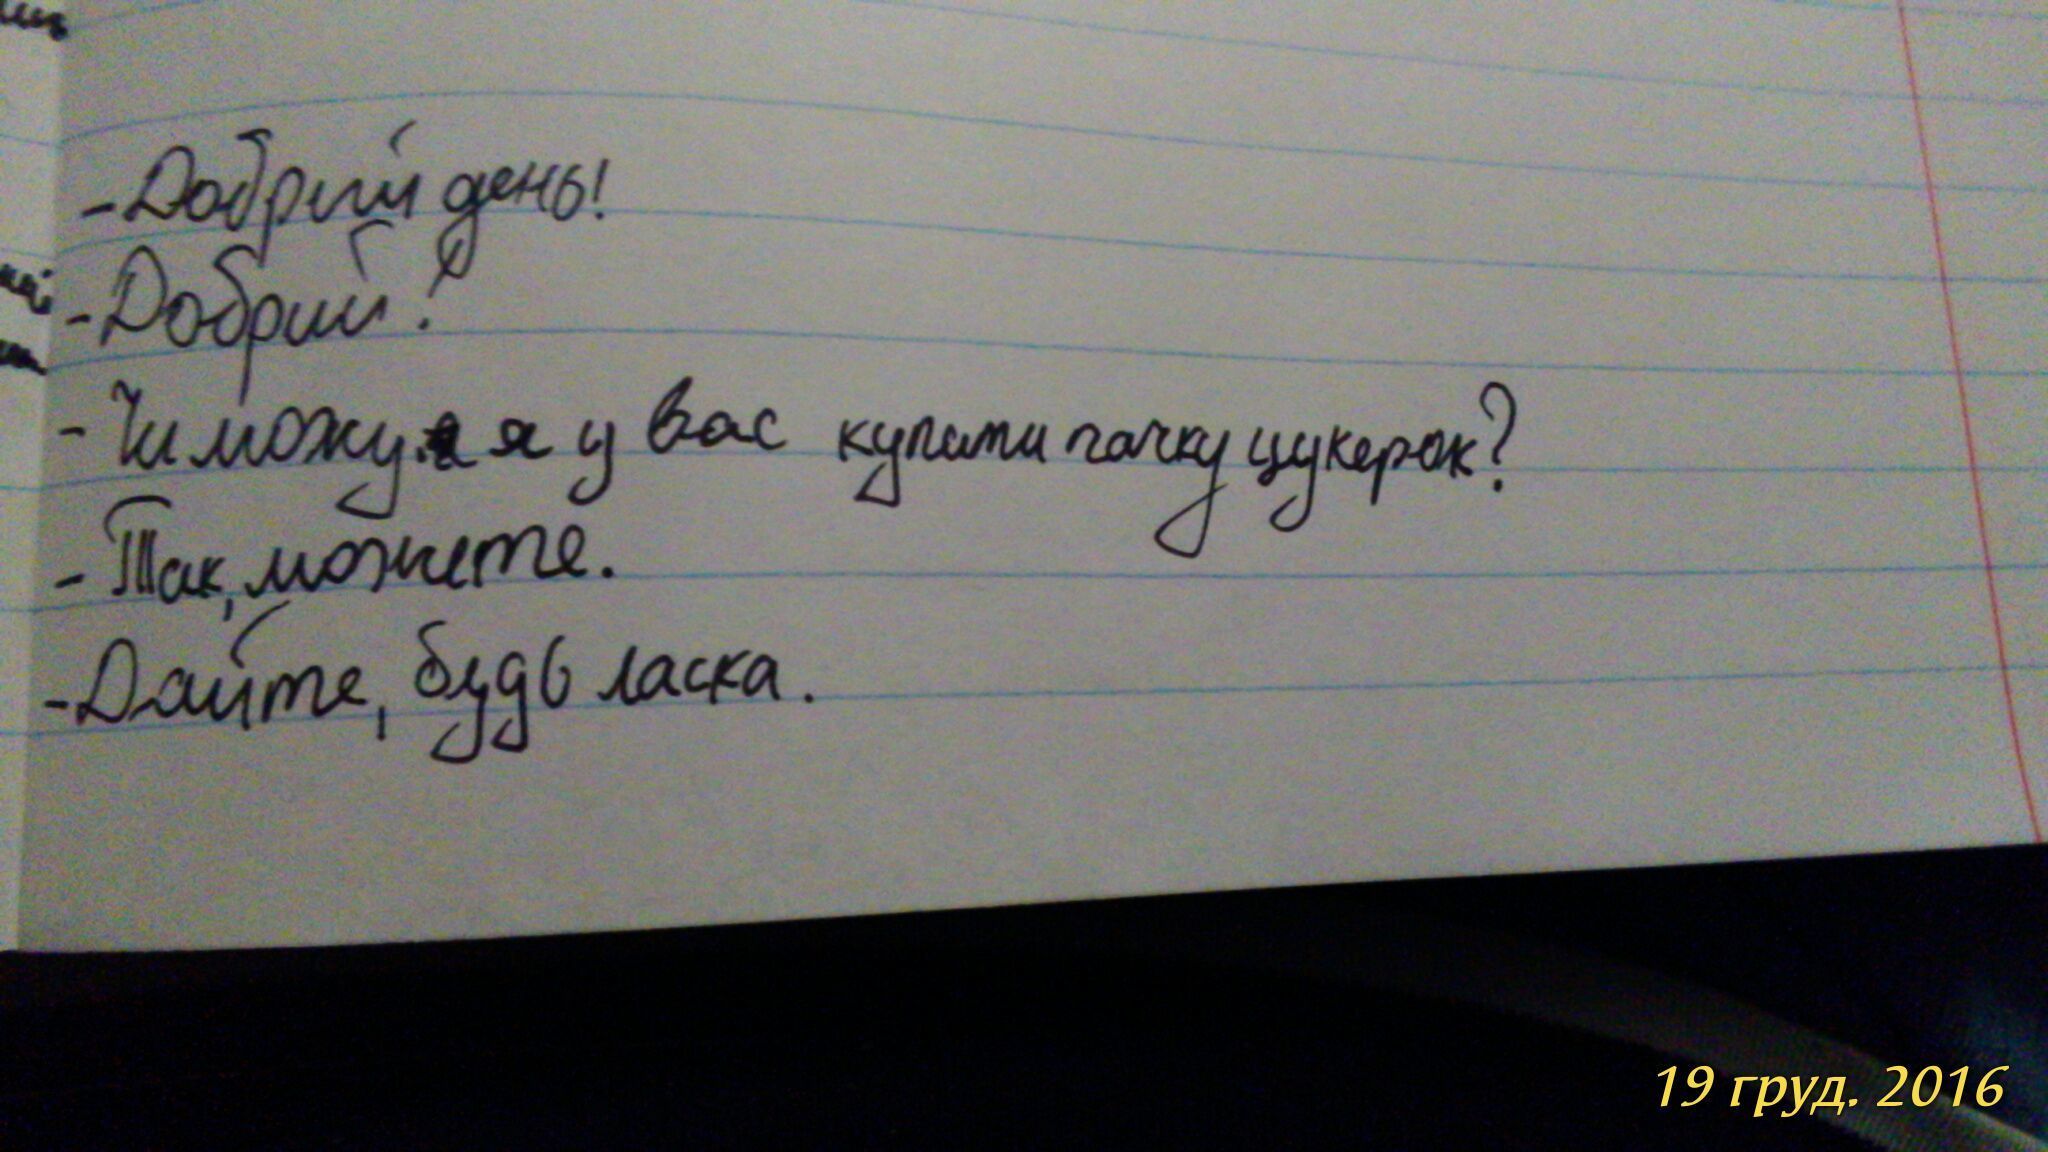 - Добрий день!
- Добрий!
- Чи можу я у вас купити пачку цукерок?
- Так, можете.
- Дайте, будь ласка.
19 груд. 2016